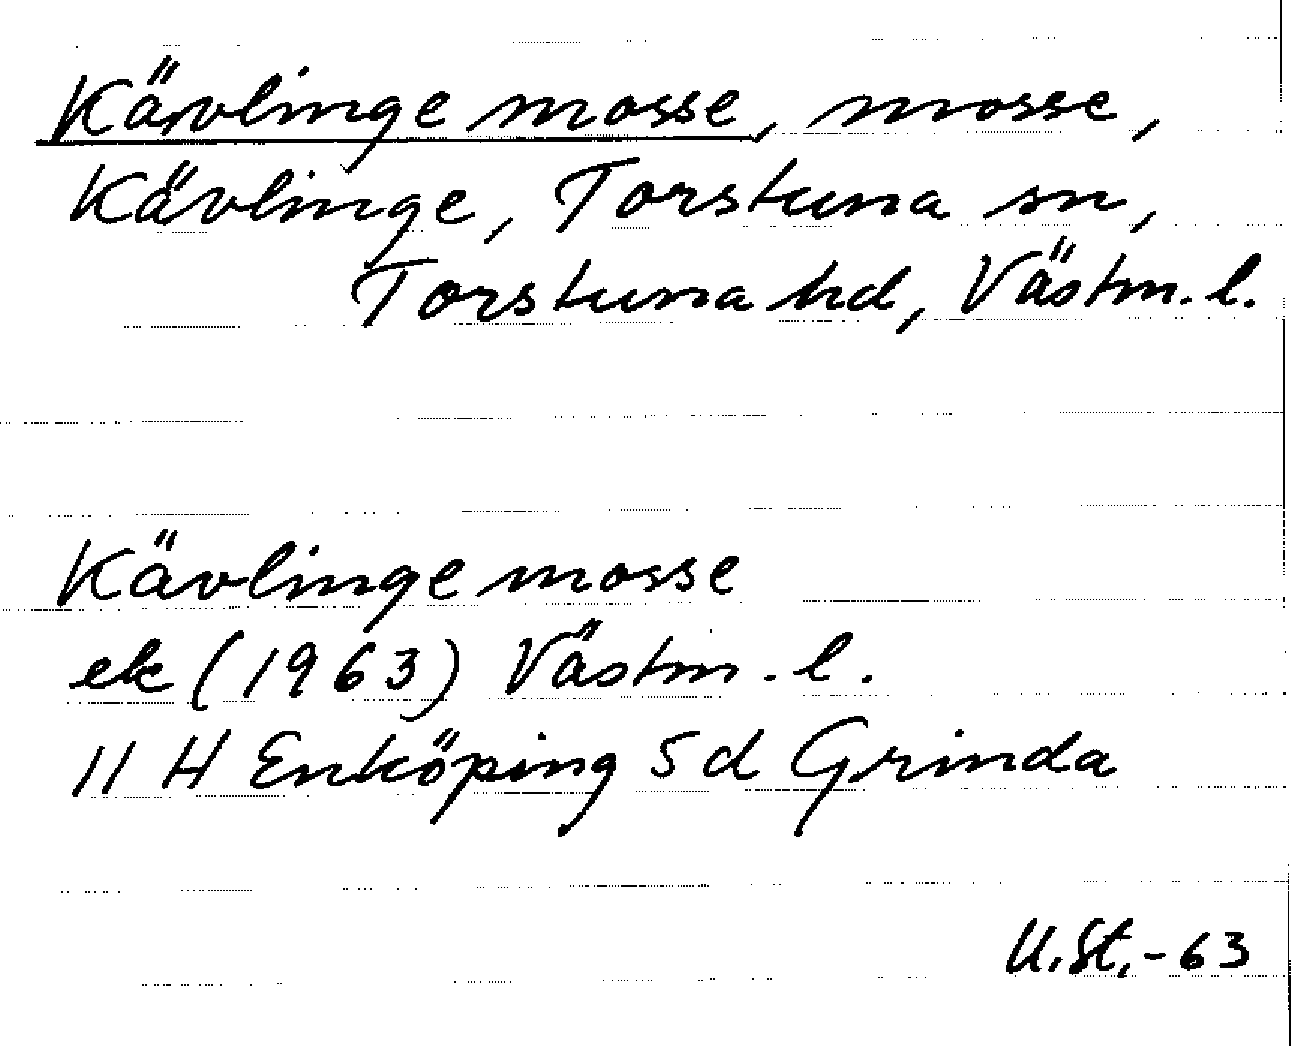 Kävlinge mosse, mosse,
Kävlinge, Torstuna sn,
Torstuna hd, Västm. l.
Kävlinge mosse
ek (1963) Västm. l.
11 H Enköping 5d Grinda
U.St.-63